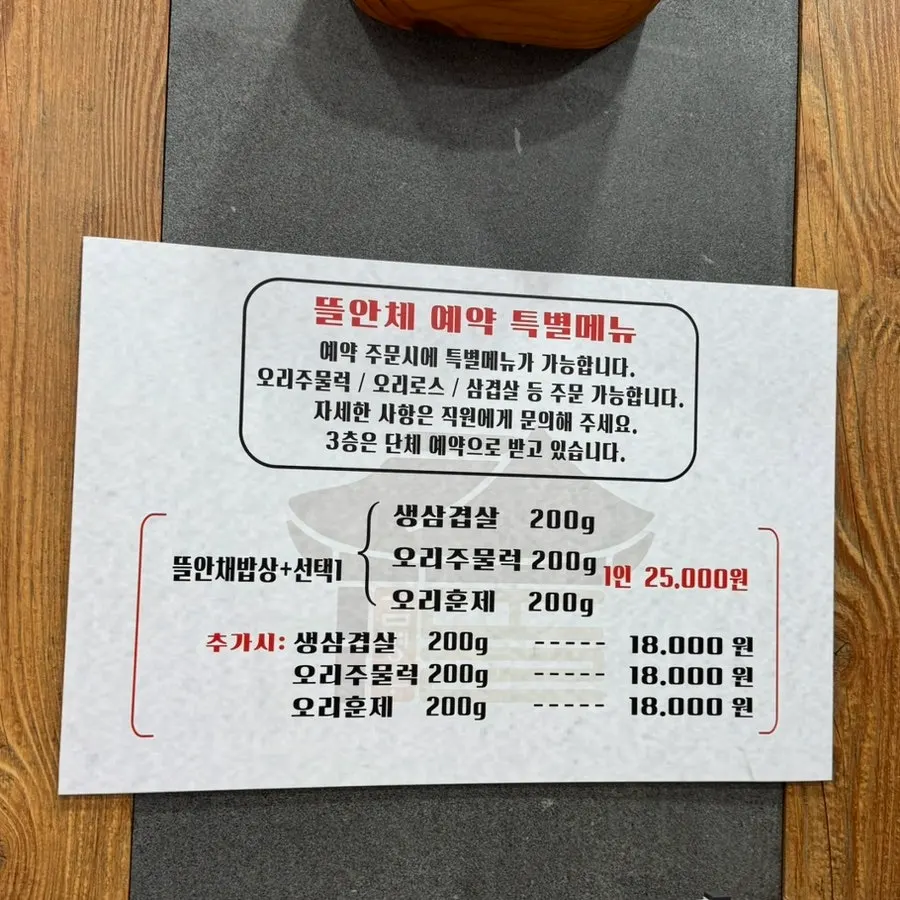 뜰안체 예약 특별메뉴
예약 주문시에 특별메뉴가 가능합니다.
오리주물럭 / 오리로스 / 삼겹살 등 주문 가능합니다.
자세한 사항은 직원에게 문의해 주세요.
3층은 단체 예약으로 받고 있습니다.
생삼겹살 200g
뜰안채밥상+선택1 오리주물럭 200g 1인 25.000원
오리훈제 200g
추가시: 생삼겹살 200g ----- 18.000 원
오리주물럭 200g ----- 18.000 원
오리훈제 200g ----- 18.000 원